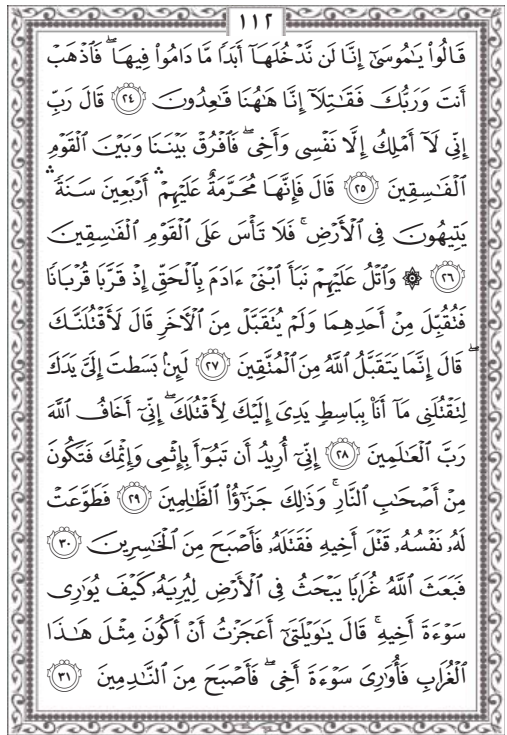 ١١٢
قَالُوا۟ يَـٰمُوسَىٰٓ إِنَّا لَن نَّدْخُلَهَآ أَبَدًا مَّا دَامُوا۟ فِيهَا ۖ فَٱذْهَبْ
أَنتَ وَرَبُّكَ فَقَـٰتِلَآ إِنَّا هَـٰهُنَا قَـٰعِدُونَ ٢٤ قَالَ رَبِّ
إِنِّى لَآ أَمْلِكُ إِلَّا نَفْسِى وَأَخِى ۖ فَٱفْرُقْ بَيْنَنَا وَبَيْنَ ٱلْقَوْمِ
ٱلْفَـٰسِقِينَ ٢٥ قَالَ فَإِنَّهَا مُحَرَّمَةٌ عَلَيْهِمْ ۛ أَرْبَعِينَ سَنَةً ۛ
يَتِيهُونَ فِى ٱلْأَرْضِ ۚ فَلَا تَأْسَ عَلَى ٱلْقَوْمِ ٱلْفَـٰسِقِينَ
٢٦ ۞ وَٱتْلُ عَلَيْهِمْ نَبَأَ ٱبْنَىْ ءَادَمَ بِٱلْحَقِّ إِذْ قَرَّبَا قُرْبَانًا
فَتُقُبِّلَ مِنْ أَحَدِهِمَا وَلَمْ يُتَقَبَّلْ مِنَ ٱلْـَٔاخَرِ قَالَ لَأَقْتُلَنَّكَ
ۖ قَالَ إِنَّمَا يَتَقَبَّلُ ٱللَّهُ مِنَ ٱلْمُتَّقِينَ ٢٧ لَئِنۢ بَسَطتَ إِلَىَّ يَدَكَ
لِتَقْتُلَنِى مَآ أَنَا۠ بِبَاسِطٍ يَدِىَ إِلَيْكَ لِأَقْتُلَكَ ۖ إِنِّىٓ أَخَافُ ٱللَّهَ
رَبَّ ٱلْعَـٰلَمِينَ ٢٨ إِنِّىٓ أُرِيدُ أَن تَبُوٓأَ بِإِثْمِى وَإِثْمِكَ فَتَكُونَ
مِنْ أَصْحَـٰبِ ٱلنَّارِ ۚ وَذَٰلِكَ جَزَٰٓؤُا۟ ٱلظَّـٰلِمِينَ ٢٩ فَطَوَّعَتْ
لَهُۥ نَفْسُهُۥ قَتْلَ أَخِيهِ فَقَتَلَهُۥ فَأَصْبَحَ مِنَ ٱلْخَـٰسِرِينَ ٣٠
فَبَعَثَ ٱللَّهُ غُرَابًا يَبْحَثُ فِى ٱلْأَرْضِ لِيُرِيَهُۥ كَيْفَ يُوَٰرِى
سَوْءَةَ أَخِيهِ ۚ قَالَ يَـٰوَيْلَتَىٰٓ أَعَجَزْتُ أَنْ أَكُونَ مِثْلَ هَـٰذَا
ٱلْغُرَابِ فَأُوَٰرِىَ سَوْءَةَ أَخِى ۖ فَأَصْبَحَ مِنَ ٱلنَّـٰدِمِينَ ٣١